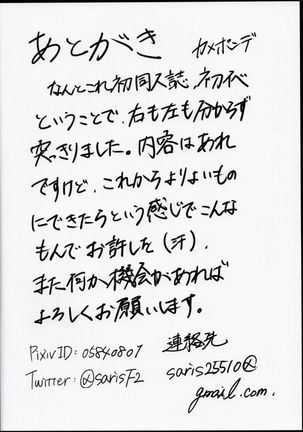 あとがき カメポンデ
なんとこれ初同人誌、初イベ
ということで、右も左も分からず
突っきりました。内容はあれ
ですけど、これからよりよいもの
にできたらという感じでこんな
もんでお許した(汗)。
また何か機会があれば
よろしくお願いします。
PixivID: 05840807
連絡先
Twitter: @sarisF2
saris25510@
gmail.com.